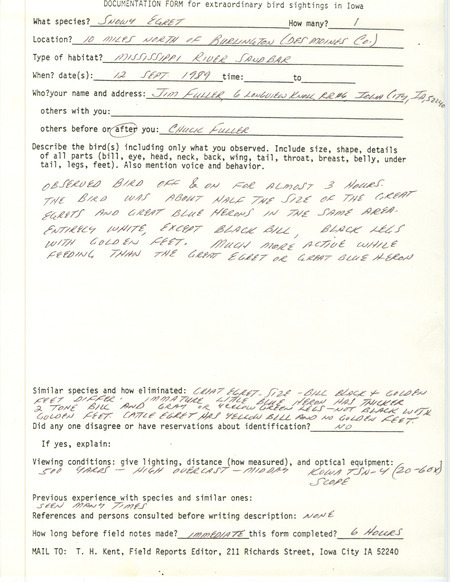 DOCUMENTATION FORM for extraordinary bird sightings in Iowa
What species? SNOWY EGRET How many? 1
Location? 10 MILES NORTH OF BURLINGTON (DES MOINES CO.)
Type of habitat? MISSISSIPPI RIVER SANDBAR
When? date(s): 12 SEPT 1989 time: to
Who?your name and address: JIM FULLER, 6 LONGVIEW KNOLL RR#6 IOWA CITY, IA, 52240
others with you:
others before or after you: CHUCK FULLER
Describe the bird(s) including only what you observed. Include size, shape, details
of all parts (bill, eye, head, neck, back, wing, tail, throat, breast, belly, under
tail, legs, feet). Also mention voice and behavior.
OBSERVED BIRD OFF & ON FOR ALMOST 3 HOURS.
THE BIRD WAS ABOUT HALF THE SIZE OF THE GREAT
EGRETS AND GREAT BLUE HERONS IN THE SAME AREA.
ENTIRELY WHITE, EXCEPT BLACK BILL, BLACK LEGS
WITH GOLDEN FEET. MUCH MORE ACTIVE WHILE
FEEDING THAN THE GREAT EGRET OR GREAT BLUE HERON
Similar species and how eliminated: GREAT EGRET - SIZE - BILL BLACK & GOLDEN
FEET DIFFER. IMMATURE LITTLE BLUE HERON HAS THICKER
2 TONE BILL AND GRAY OR YELLOW GREEN LEGS - NOT BLACK WITH
GOLDEN FEET. CATTLE EGRET HAS YELLOW BILL AND NO GOLDEN FEET.
Did any one disagree or have reservations about identification? NO
If yes, explain:
Viewing conditions: give lighting, distance (how measured), and optical equipment:
500 YARDS - HIGH OVERCAST - MIDDAY KOWA TSN-4 (20-60X)
SCOPE
Previous experience with species and similar ones:
SEEN MANY TIMES
References and persons consulted before writing description: NONE
How long before field notes made? IMMEDIATE this form completed? 6 HOURS
MAIL TO: T. H. Kent, Field Reports Editor, 211 Richards Street, Iowa City IA 52240